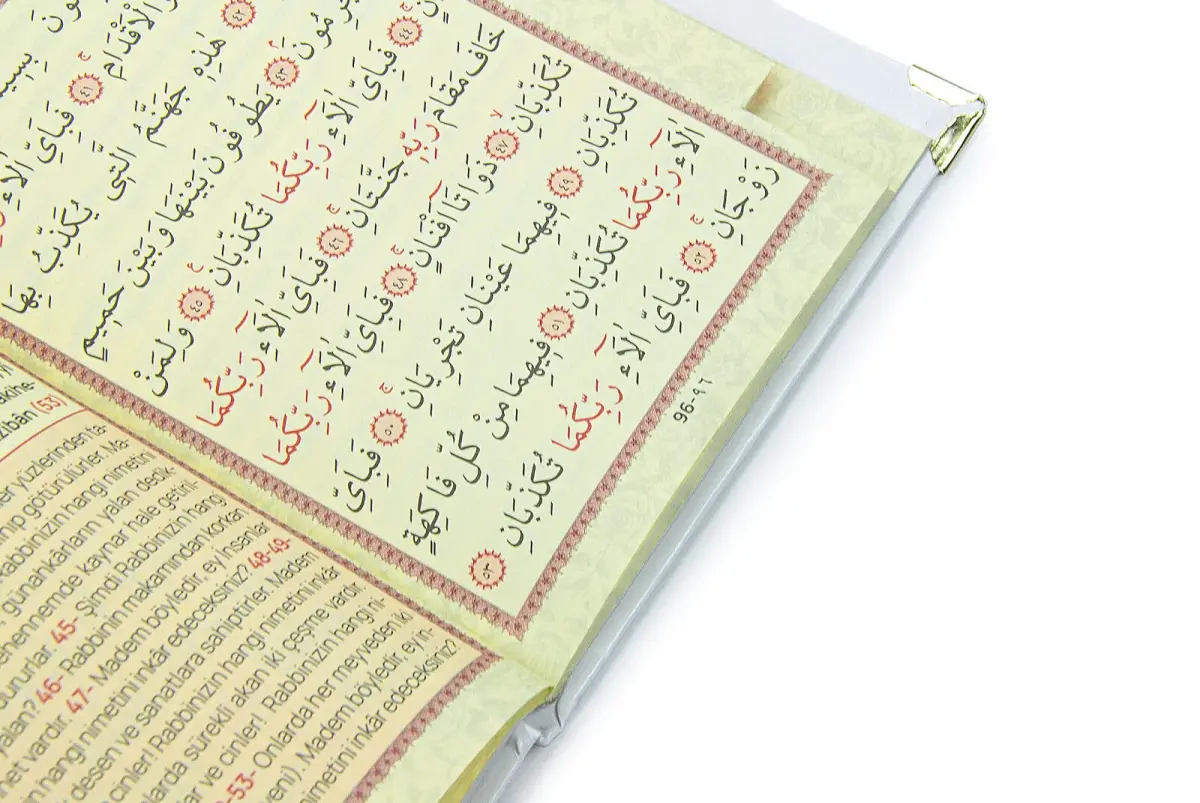 وَالْاَقْدَامِ ﴿٤١﴾ فَبِاَيِّ اٰلَٓاءِ
﴿٤٢﴾ هٰذِهِ جَهَنَّمُ الَّتِي يُكَذِّبُ بِهَا
﴿٤٣﴾ يَطُوفُونَ بَيْنَهَا وَبَيْنَ حَمِيمٍ
﴿٤٤﴾ فَبِاَيِّ اٰلَٓاءِ رَبِّكُمَا تُكَذِّبَانِ ﴿٤٥﴾ وَلِمَنْ
خَافَ مَقَامَ رَبِّهِ جَنَّتَانِ ﴿٤٦﴾ فَبِاَيِّ اٰلَٓاءِ رَبِّكُمَا
تُكَذِّبَانِ ﴿٤٧﴾ ذَوَاتَٓا اَفْنَانٍ ﴿٤٨﴾ فَبِاَيِّ اٰلَٓاءِ رَبِّكُمَا
تُكَذِّبَانِ ﴿٤٩﴾ فِيهِمَا عَيْنَانِ تَجْرِيَانِ ﴿٥٠﴾ فَبِاَيِّ
اٰلَٓاءِ رَبِّكُمَا تُكَذِّبَانِ ﴿٥١﴾ فِيهِمَا مِنْ كُلِّ فَاكِهَةٍ
زَوْجَانِ ﴿٥٢﴾ فَبِاَيِّ اٰلَٓاءِ رَبِّكُمَا تُكَذِّبَانِ ﴿٥٣﴾
96-٩٦
(53)
yüzlerinden ta-
götürülürler. Ma-
Rabbinizin hangi nimetini
günahkârların yalan dedik-
cehennemde kaynar hale getiril-
dururlar. 45- Şimdi Rabbinizin hangi
yalan? 46- Rabbinin makamından korkan
vardır. 47- Madem böyledir, ey! İnsanlar
hangi nimetini inkâr edeceksiniz? 48-49-
desen ve sanatlara sahiptirler. Madem
cinler! Rabbinizin hangi nimetini inkâr
sürekli akan iki çeşme vardır.
ve cinler! Rabbinizin hangi ni-
53- Onlarda her meyveden iki
Madem böyledir, ey in-
nimetini inkâr edeceksiniz?